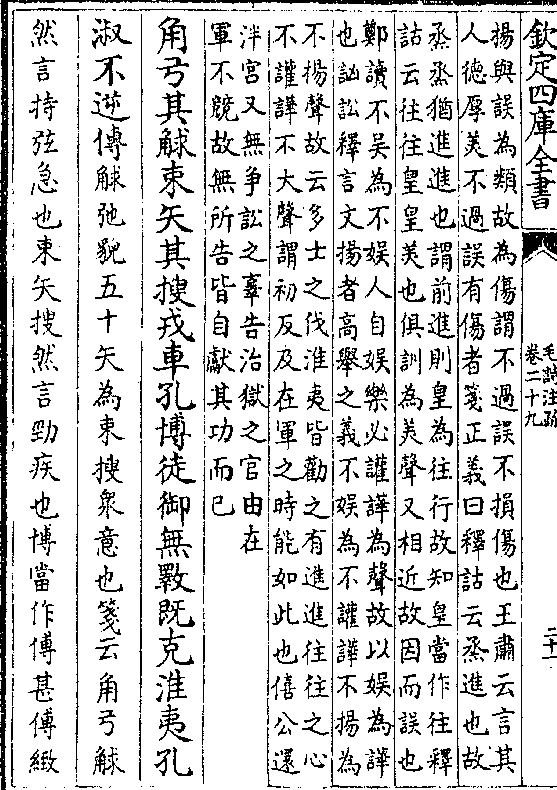 欽定四庫全書
毛詩注疏
卷二十九
二十一
揚與誤為類故為傷謂不過誤不損傷也王肅云言其
人德厚美不過誤有傷者箋正義曰釋詁云烝進也故
烝烝猶進進也謂前進則皇為往行故知皇當作往釋
詁云往往皇皇美也俱訓為美聲又相近故因而誤也
鄭讀不吳為不娛人自娛樂必讙譁為聲故以娛為譁
也訩訟釋言文揚者高舉之義不娛為不讙譁不揚為
不揚聲故云多士之伐淮夷皆勸之有進進往往之心
不讙譁不大聲謂初反及在軍之時能如此也僖公還
泮宫又無争訟之辜告治獄之官由在
軍不競故無所告皆自獻其功而已
角弓其觩束矢其搜戎車孔博徒御無斁既克淮夷孔
淑不逆傳觩弛貌五十矢為束搜衆意也箋云角弓觩
然言持弦急也束矢搜然言勁疾也博當作傅甚傅緻